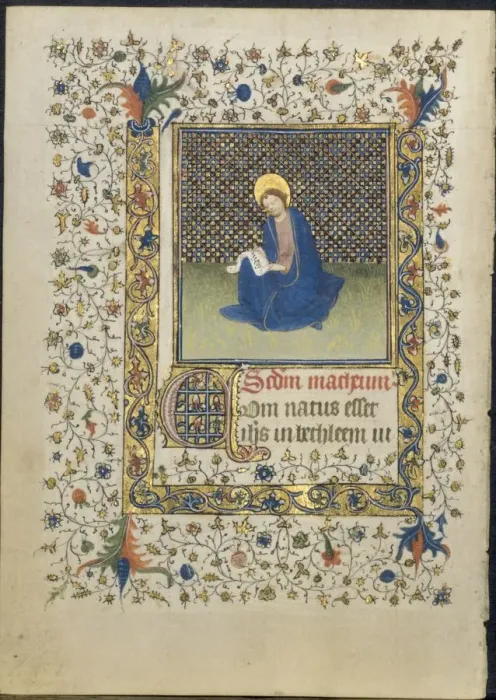 Scdm matheum
CUm natus esset
ihs in bethleem iu